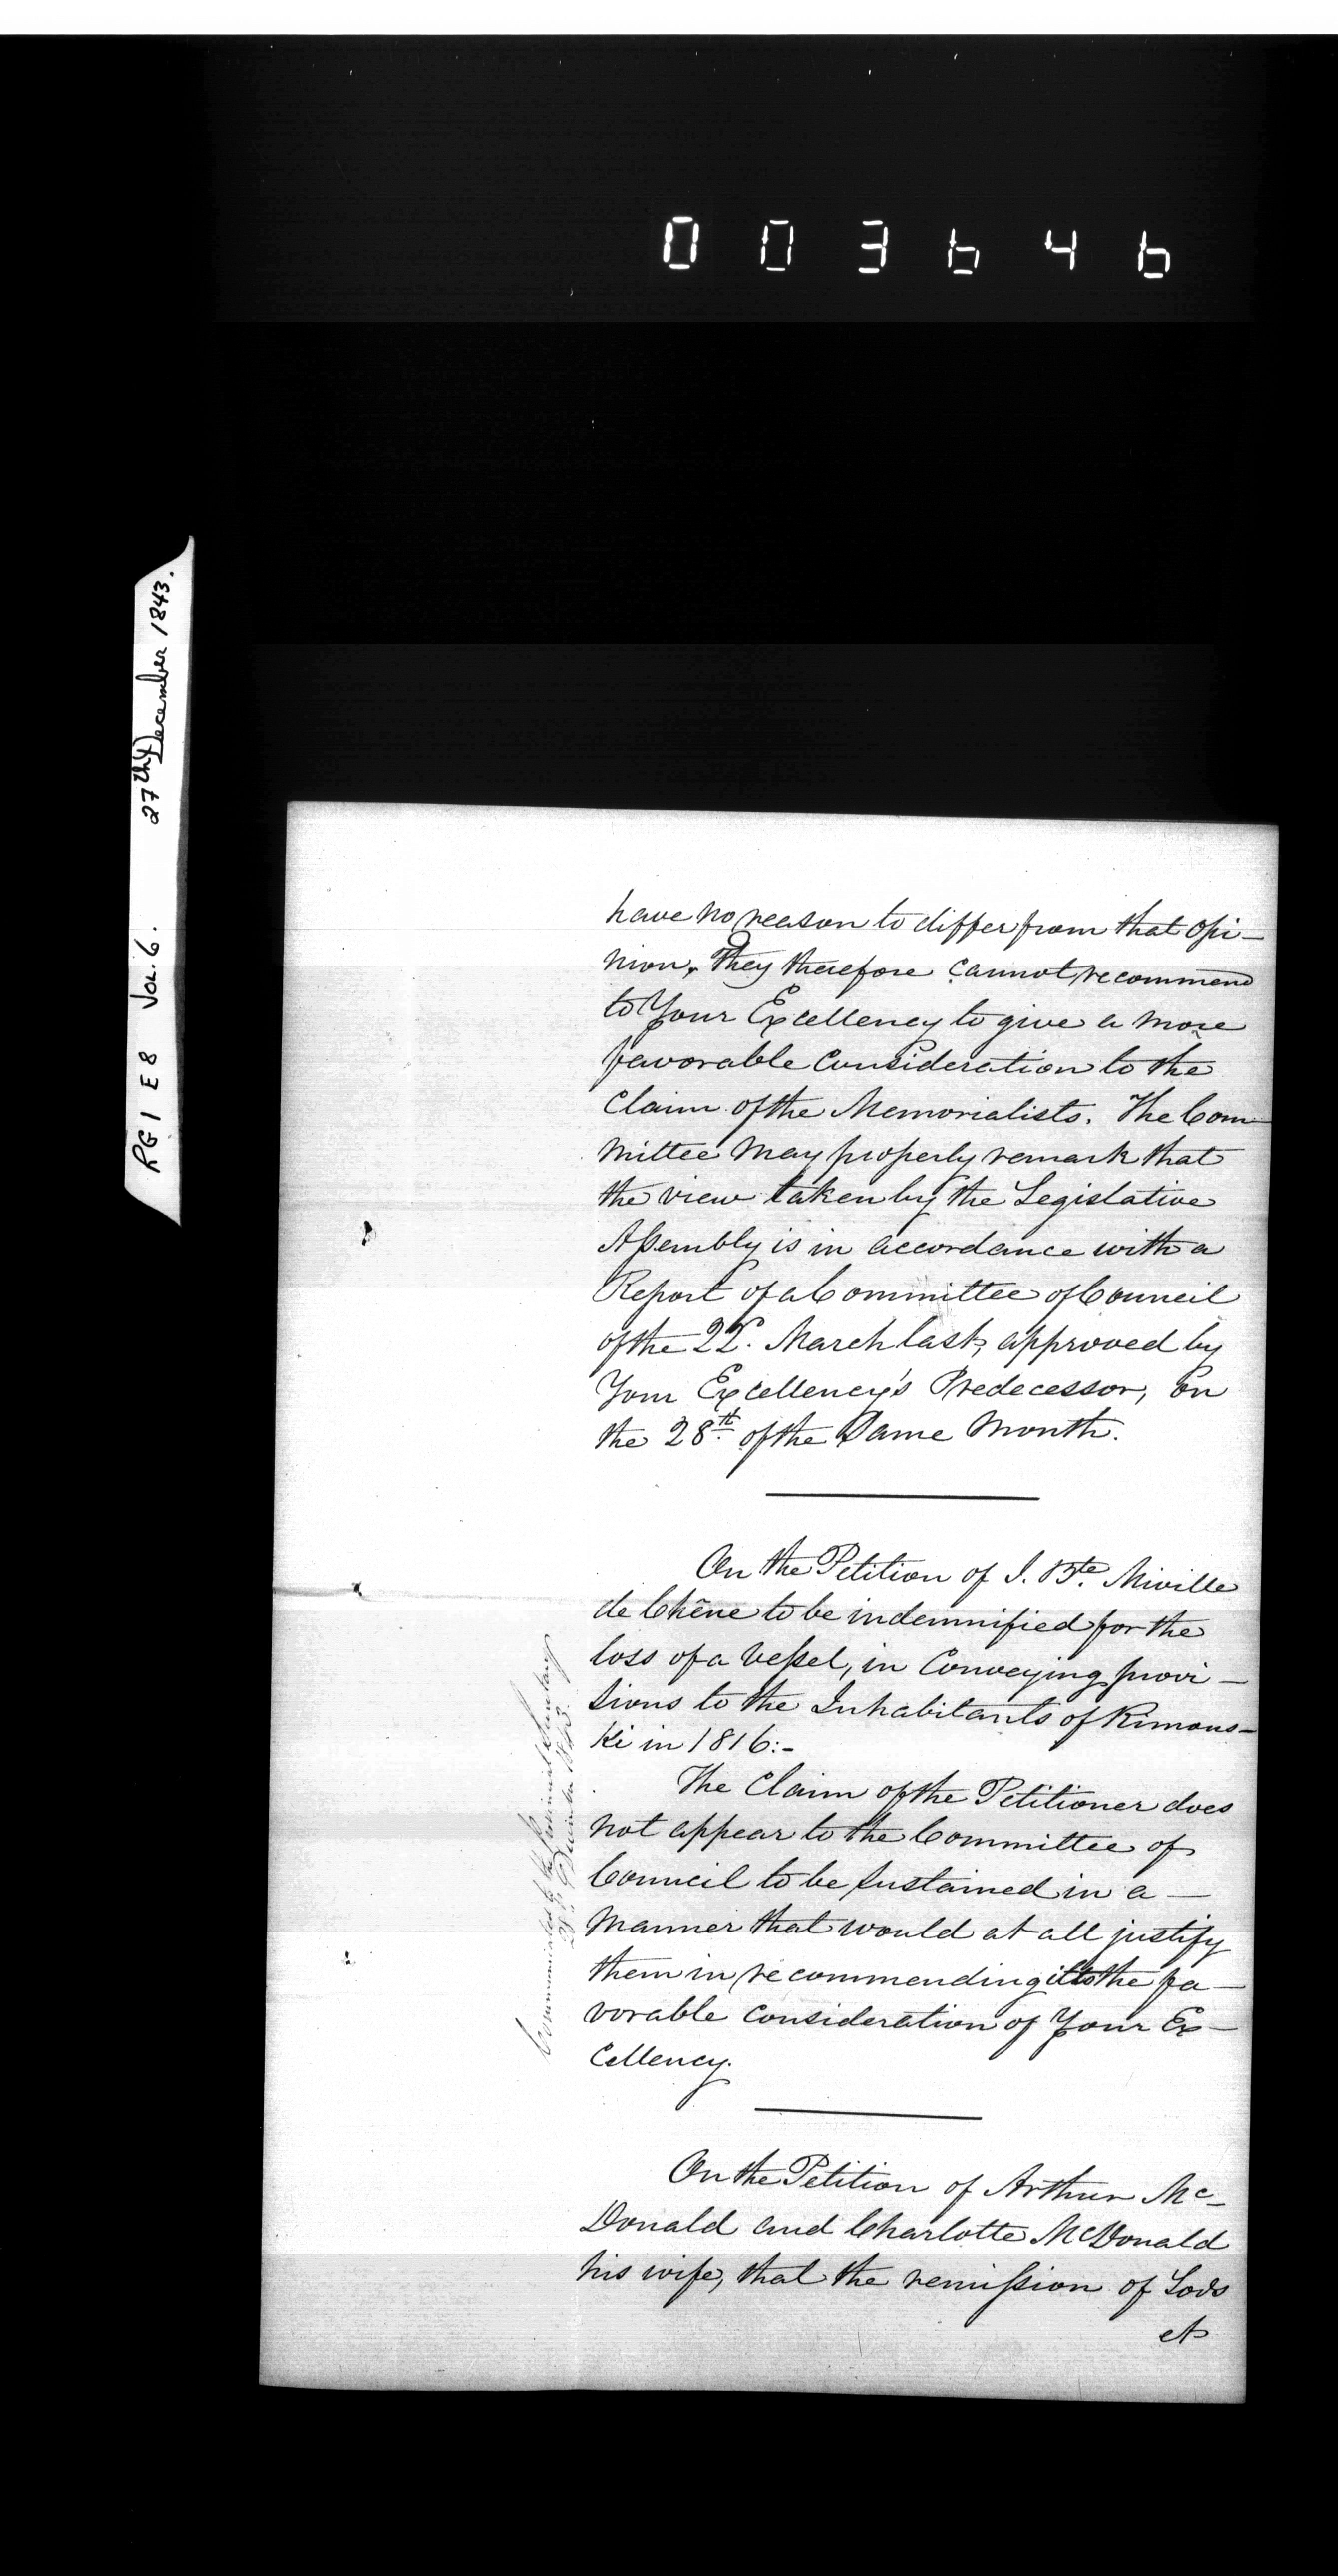 003646
RG1 E8 Vol. 6. 27th December 1843.
have no reason to differ from that Opi-
nion. They therefore cannot recommend
to Your Excellency to give a more
favorable Consideration to the
Claim of the Memorialists. The Com-
mittee may properly remark that
the view taken by the Legislative
Assembly is in accordance with a
Report of a Committee of Council
of the 22d. March last, approved by
Your Excellency's Predecessor, on
the 28th. of the Same Month.
On the Petition of J. Bte. Miville
de Chêne to be indemnified for the
loss of a Vessel, in Conveying provi-
sions to the Inhabitants of Rimous-
Ki in 1816:-
The Claim of the Petitioner does
not appear to the Committee of
Council to be sustained in a -
manner that would at all justify
them in recommending it to the fa-
vorable consideration of Your Ex-
cellency.
Communicated to the Provincial Secretary
December 1843.
On the Petition of Arthur Mc-
Donald and Charlotte McDonald
his wife, that the remission of Lods
et